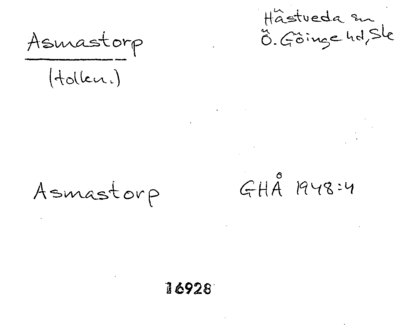 Asmastorp
(tolkn.)
Hästveda sn
Ö. Göinge hd, Sk
Asmastorp
GHÅ 1948:4
16928